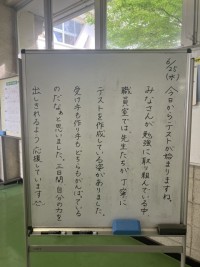 6/25(水)
今日からテストが始まりますね。
みなさんが勉強に取り組んでいる中
職員室では、先生たちが丁寧に
テストを作成している姿がありました。
受け手も作り手もどちらもがんばっている
のだなぁと思いました。三日間、自分の力を
出しきれるよう応援しています♡